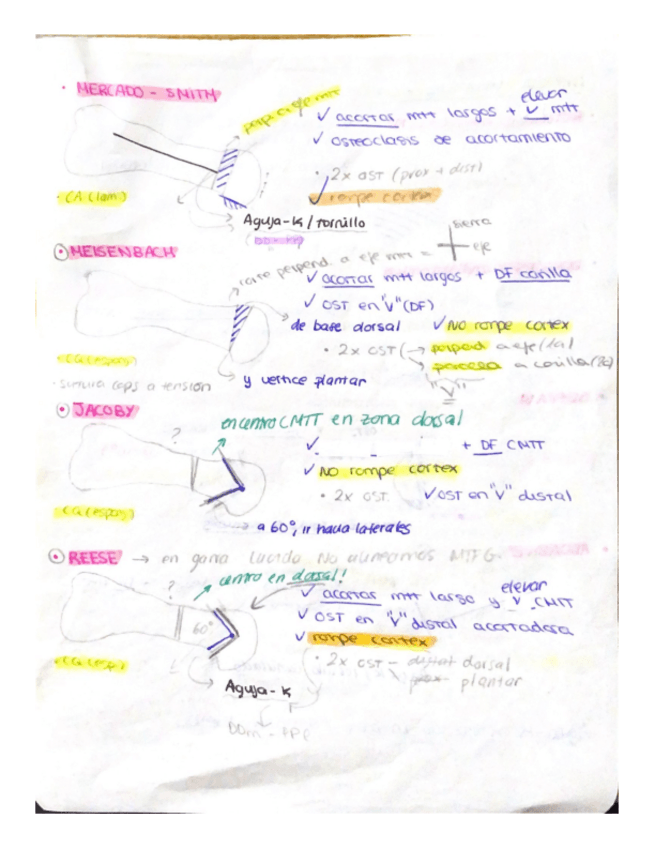 · MERCADO - SMITH
perp. a eje mtt
✓ acortar mtt largos + elevar v mtt
✓ osteoclasis de acortamiento
· 2x OST (prox + dist)
✓ rompe cortex
· CA (lam)
Aguja-K / tornillo
serra
eje
⊙ MEISENBACH
corte perpend. a eje mtt =
✓ acortar mtt largos + DF carilla
✓ OST en "V" (DF)
de base dorsal ✓ No rompe cortex
· 2x OST (→ perpend a eje (1a)
→ paralela a carilla (2a)
"V"
· CA (espos)
· sutura caps a tensión
y vertice plantar
⊙ JACOBY
en centro CMTT en zona dorsal
?
✓ + DF CMTT
✓ No rompe cortex
· 2x OST. ✓ OST en "V" distal
CA (espos)
a 60°, ir hacia laterales
⊙ REESE → en garra lucido No alineamos MTFG.
? centro en dorsal!
60°
✓ acortar mtt largo y elevar v. CMTT
✓ OST en "V" distal acortadora
✓ rompe cortex
· 2x OST - distal dorsal
prox plantar
CA (esp)
Aguja-K